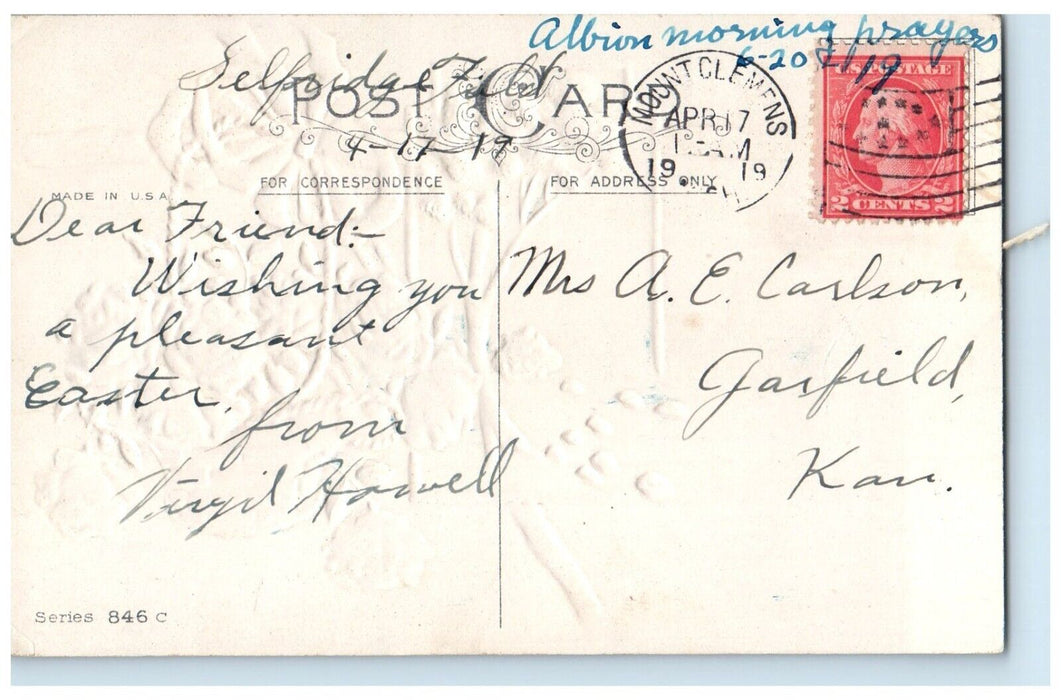 Albion morning prayers
6-20 19
Selfridge Field
POST CARD
4-17-19
MOUNT CLEMENS
APR 17
AM
19 19
U.S. POSTAGE
2 CENTS 2
FOR CORRESPONDENCE
FOR ADDRESS ONLY
MADE IN U.S.A.
Dear Friend:-
Wishing you
a pleasant
Easter.
from
Virgil Howell
Mrs A. E. Carlson,
Garfield,
Kan.
Series 846 C